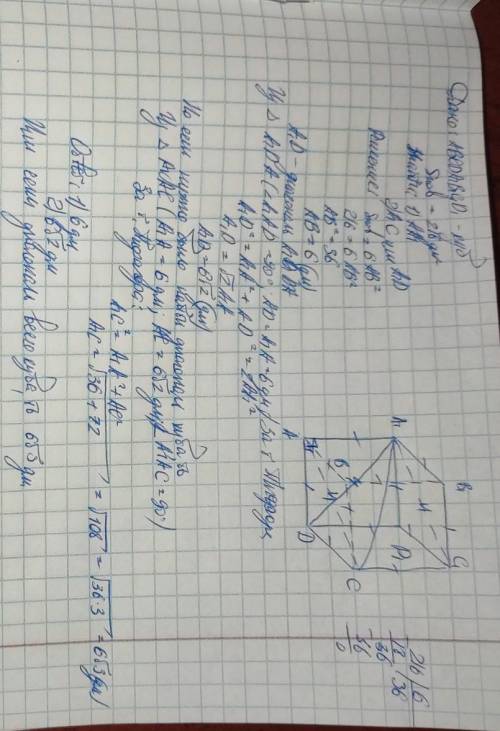 Дано: ABCDA₁B₁C₁D₁ - куб
Sпов = 216 дм²
Найти: 1) AA₁
2) AC или A₁D
Решение: Sпов = 6AB²
216 = 6AB²
AB² = 36
AB = 6 (дм)
A₁D - диагональ
Из △ A₁DA (∠A₁AD = 90°, AD = A₁A = 6 дм) За т. Пифагора
A₁D² = A₁A² + AD² = 2AA₁²
A₁D = √2AA₁
A₁D = 6√2 (дм)
Но если нужно было найти диагональ куба, то
Из △ A₁AC (A₁A = 6 дм; AC = 6√2 дм; ∠A₁AC = 90°)
За т. Пифагора:
A₁C² = A₁A² + AC²
A₁C = √36 + 72 = √108 = √36·3 = 6√3 (дм)
Ответ: 1) 6 дм
2) 6√2 дм
Или если диагональ всего куба, то 6√3 дм
B₁
C₁
A₁
D₁
6
A
D
C
216 | 6
18 | 36
36
36
0